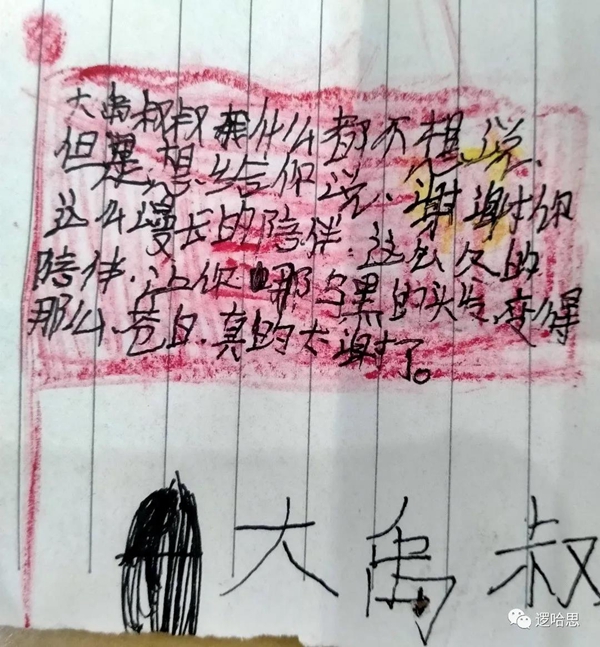 大禹叔叔我什么都不想说、
但是、想、给你说、谢谢你
这么漫长的陪伴、这么久的
陪伴、让你那乌黑的头发、变得
那么、苍白、真的太谢了。
大禹叔
逻哈思